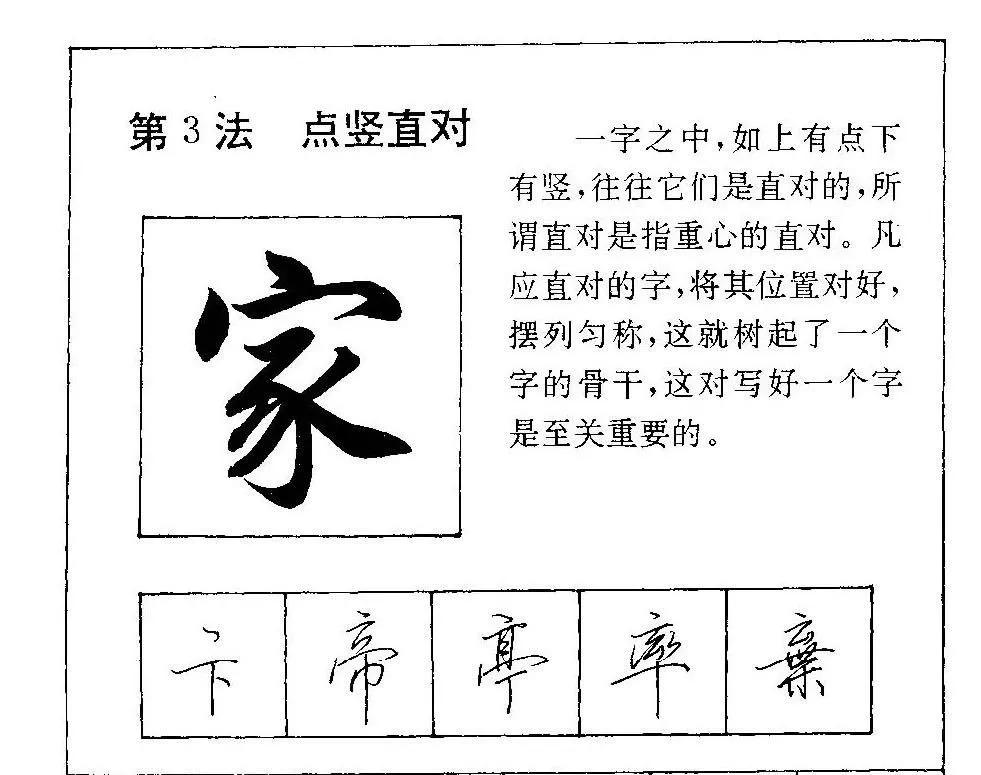 第3法 点竖直对
一字之中,如上有点下
有竖,往往它们是直对的,所
谓直对是指重心的直对。凡
应直对的字,将其位置对好,
摆列匀称,这就树起了一个
字的骨干,这对写好一个字
是至关重要的。
家
卞 帝 亭 率 棄